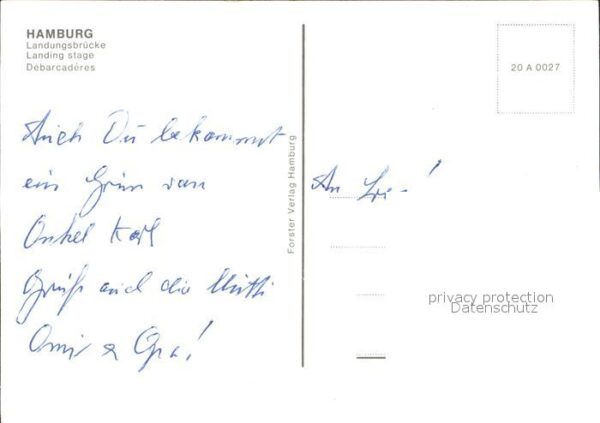 HAMBURG
Landungsbrücke
Landing stage
Débarcadères
20 A 0027
Auch Du bekommst
ein Gruß von
Onkel Karl
Grüß auch die Mutti
Omi & Opa!
Forster Verlag Hamburg
An
privacy protection
Datenschutz